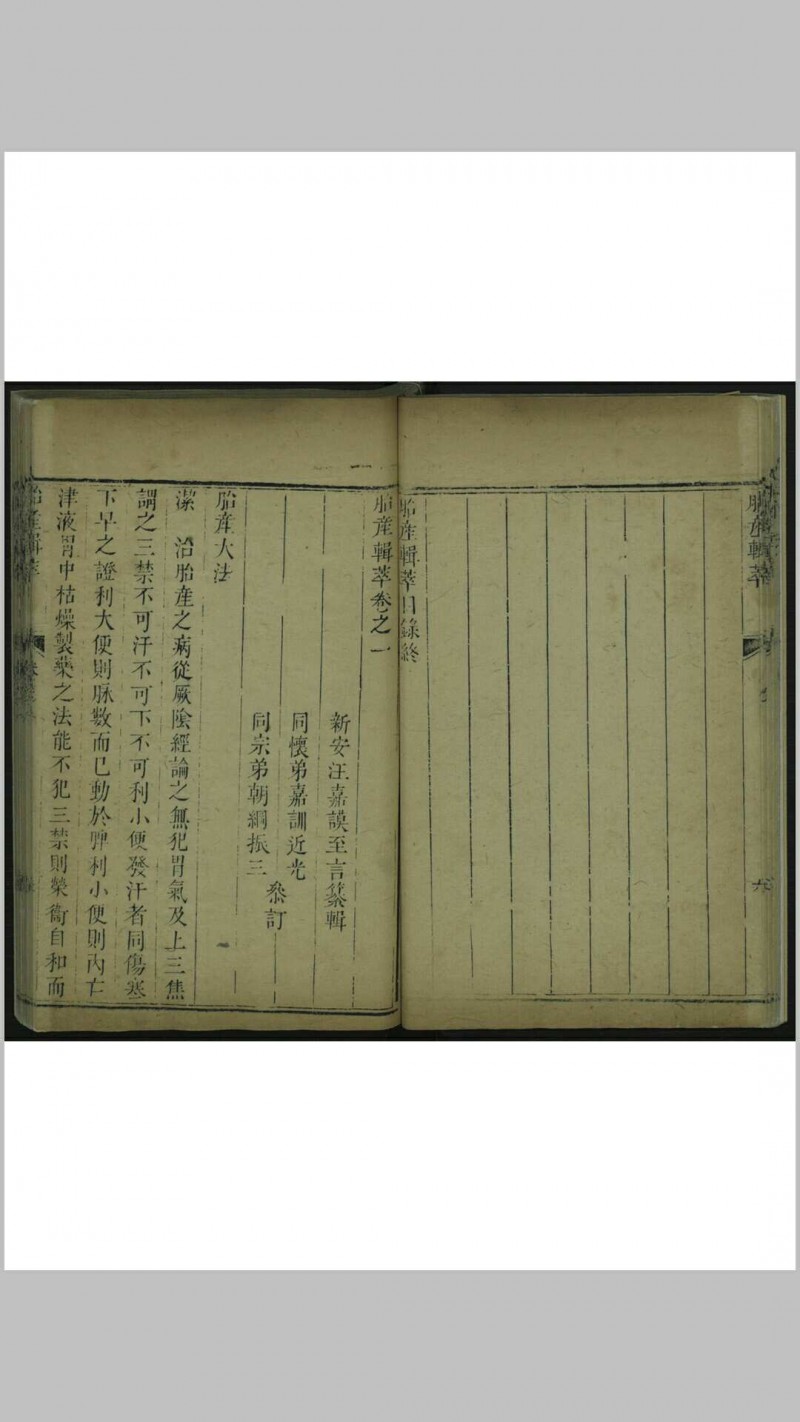 胎產輯萃
胎產輯萃目錄終
胎產輯萃卷之一
新安汪嘉謨至言纂輯
同懷弟嘉訓近光
同宗弟朝綱振三
叅訂
胎產大法
潔 治胎產之病從厥隂經論之無犯胃氣及上三焦
謂之三禁不可汗不可下不可利小便發汗者同傷寒
下早之證利大便則脈數而已動於脾利小便則內亡
津液胃中枯燥製藥之法能不犯三禁則榮衞自和而
胎產輯萃